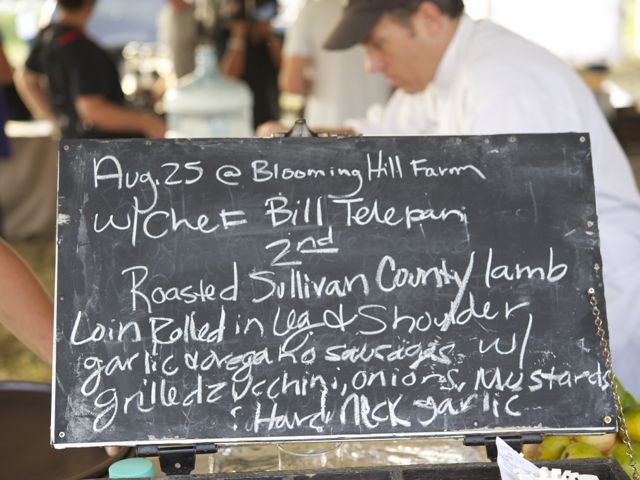 Aug. 25 @ Blooming Hill Farm
w/ Chef Bill Telepan
2nd
Roasted Sullivan County lamb
Loin Rolled in Leg & Shoulder
garlic & oregano sausages w/
grilled zucchini, onions, Mustards
: Hard Neck garlic